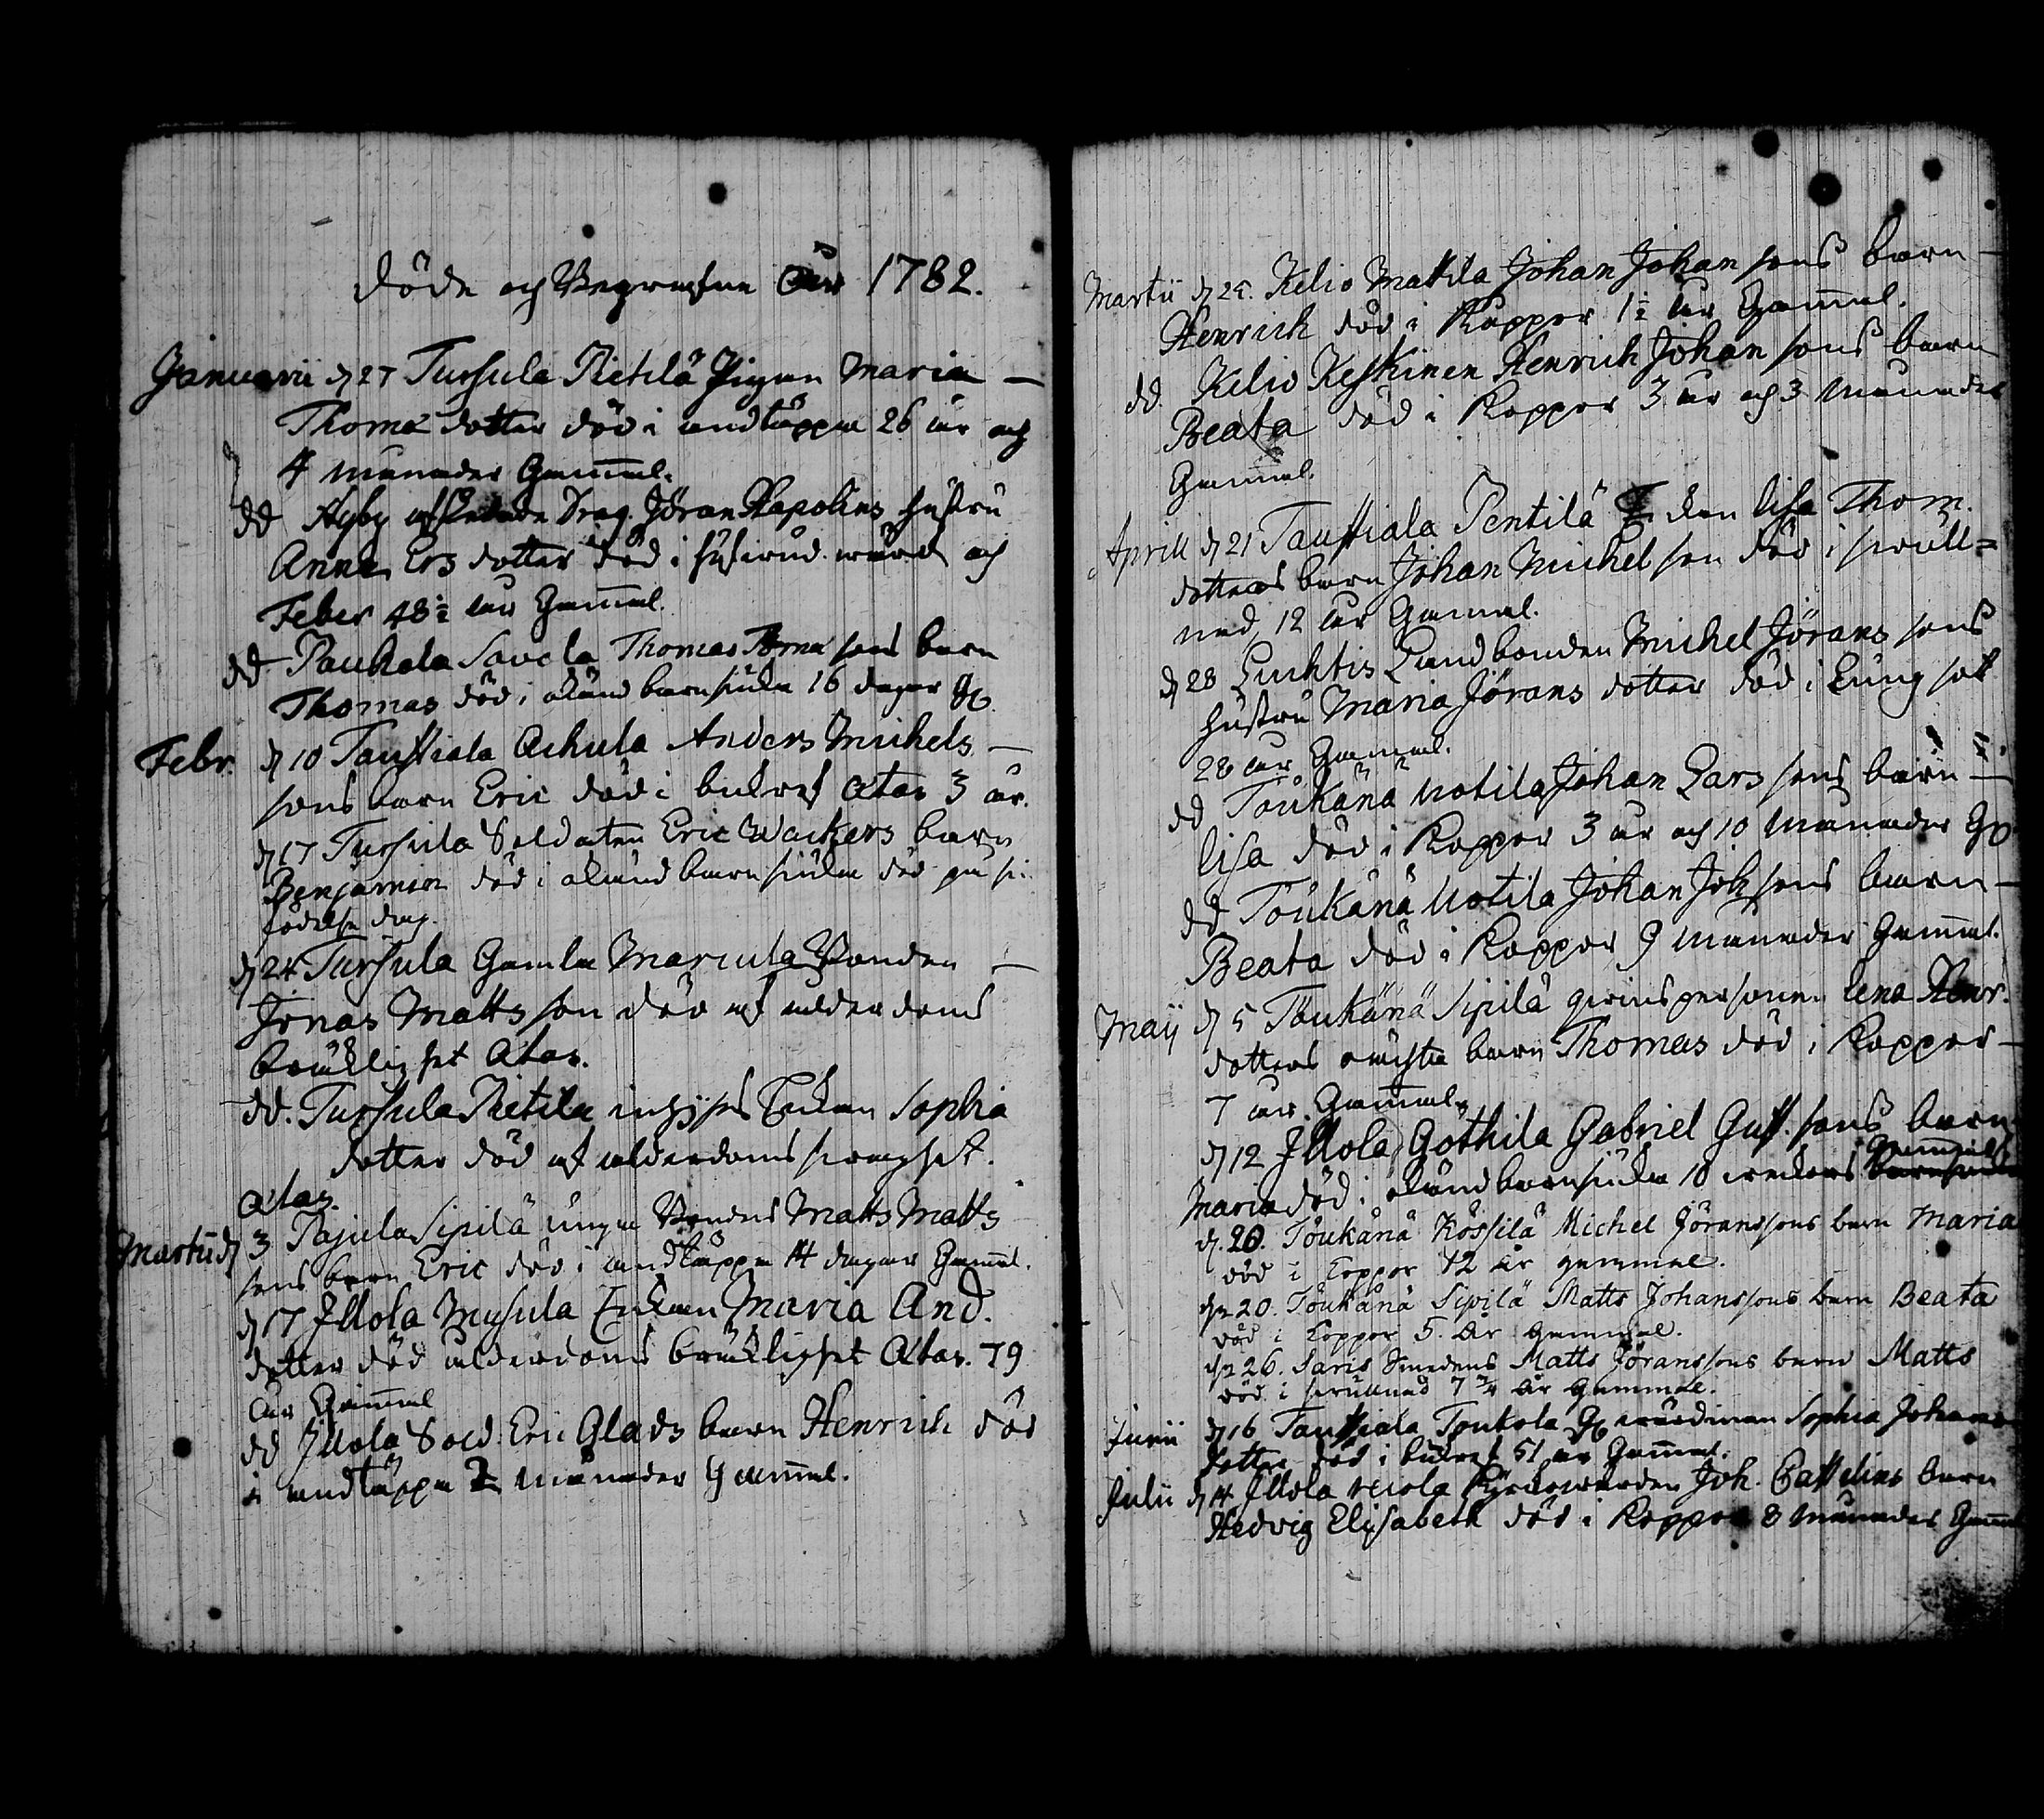 Döde och Begrafne Åhr 1782.
Januarii d 27 Tursula Pietilä Pigan Maria
Thomæ dotter död i andtäppa 26 år och
4 månader Gammal.
dd Afskedade Drag. Jöran Hapolins hustru
Anna Ers dotter död i och
Feber 48½ år Gammal.
dd Paukala Savola Thomas Thomæ sons barn
Thomas död i okänd barnsiuka 16 dagar G.
Febr. d 10 Tausiala Ackula Anders Michels
sons barn Eric död i bulref ætas 3 år.
d 17 Tursula Soldaten Eric Wackers barn
Benjamin död i okänd barnsiuka död på
födelse dag.
d 24 Tursula Gamla Marcula Bonden
Jonas Matts son död af ålderdoms
bräklighet ætas.
dd. Tursula Pietila Enkan Sophia
dotter död af ålderdoms swaghet.
ætas.
Martii d 3 Pajula Sipilä unga Bondens Matts Matts
sons barn Eric död i andtäppa 14 dagar Gammal.
d 17 Illola Mysula Enkan Maria And.
dotter död ålderdoms bräklighet ætas. 79
år Gammal
dd Illola Sold. Eric Glads barn Henrich död
i andtäppa 2 månader Gammal.
Martii d 25. Kelio Mattila Johan Johan sons barn
Henrich död i Koppor 1½ år Gammal.
dd. Kelio Keskinen Henrich Johan sons barn
Beata död i Koppor 3 år och 3 månader
Gammal.
Aprill d 21 Taustiala Pentilä Lisa Thom.
dotters barn Johan Michel son död i swull=
nad 12 år Gammal.
d 28 Luhtis Landbonden Michel Jörans sons
hustru Maria Jörans dotter död i Lungsot
28 år Gammal.
dd Töukänä Uotila Johan Lars sons barn
Lisa död i Koppor 3 år och 10 Månader G.
dd Töukänä Uotila Johan Joh sons barn
Beata död i Koppor 9 månader Gammal.
Maij d 5 Töukänä Sipilä qwinspersonen Lena Henr.
dotters oächta barn Thomas död i Koppor
7 år Gammal.
d 12 Illola Gothila Gabriel Gust. sons barn
Maria död i okänd barnsiuka 10 weckors Gammal
d. 20. Töukänä Kössilä Michel Jöranssons barn Maria
död i Koppor 12 år gammal.
d. 20. Töukänä Sipilä Matts Johanssons barn Beata
död i Koppor 5 år Gammal.
d. 26. Saris Smedens Matts Jöranssons barn Matts
död i swullnad 7 ¾ år Gammal.
Junii d 16 Taustiala Toukola Sophia Johans
dotter död i bulref 51 år Gammal.
Julii d 14 Illola Kyrkowärden Joh. barn
Hedvig Elisabeth död i Koppor 8 månader Gammal